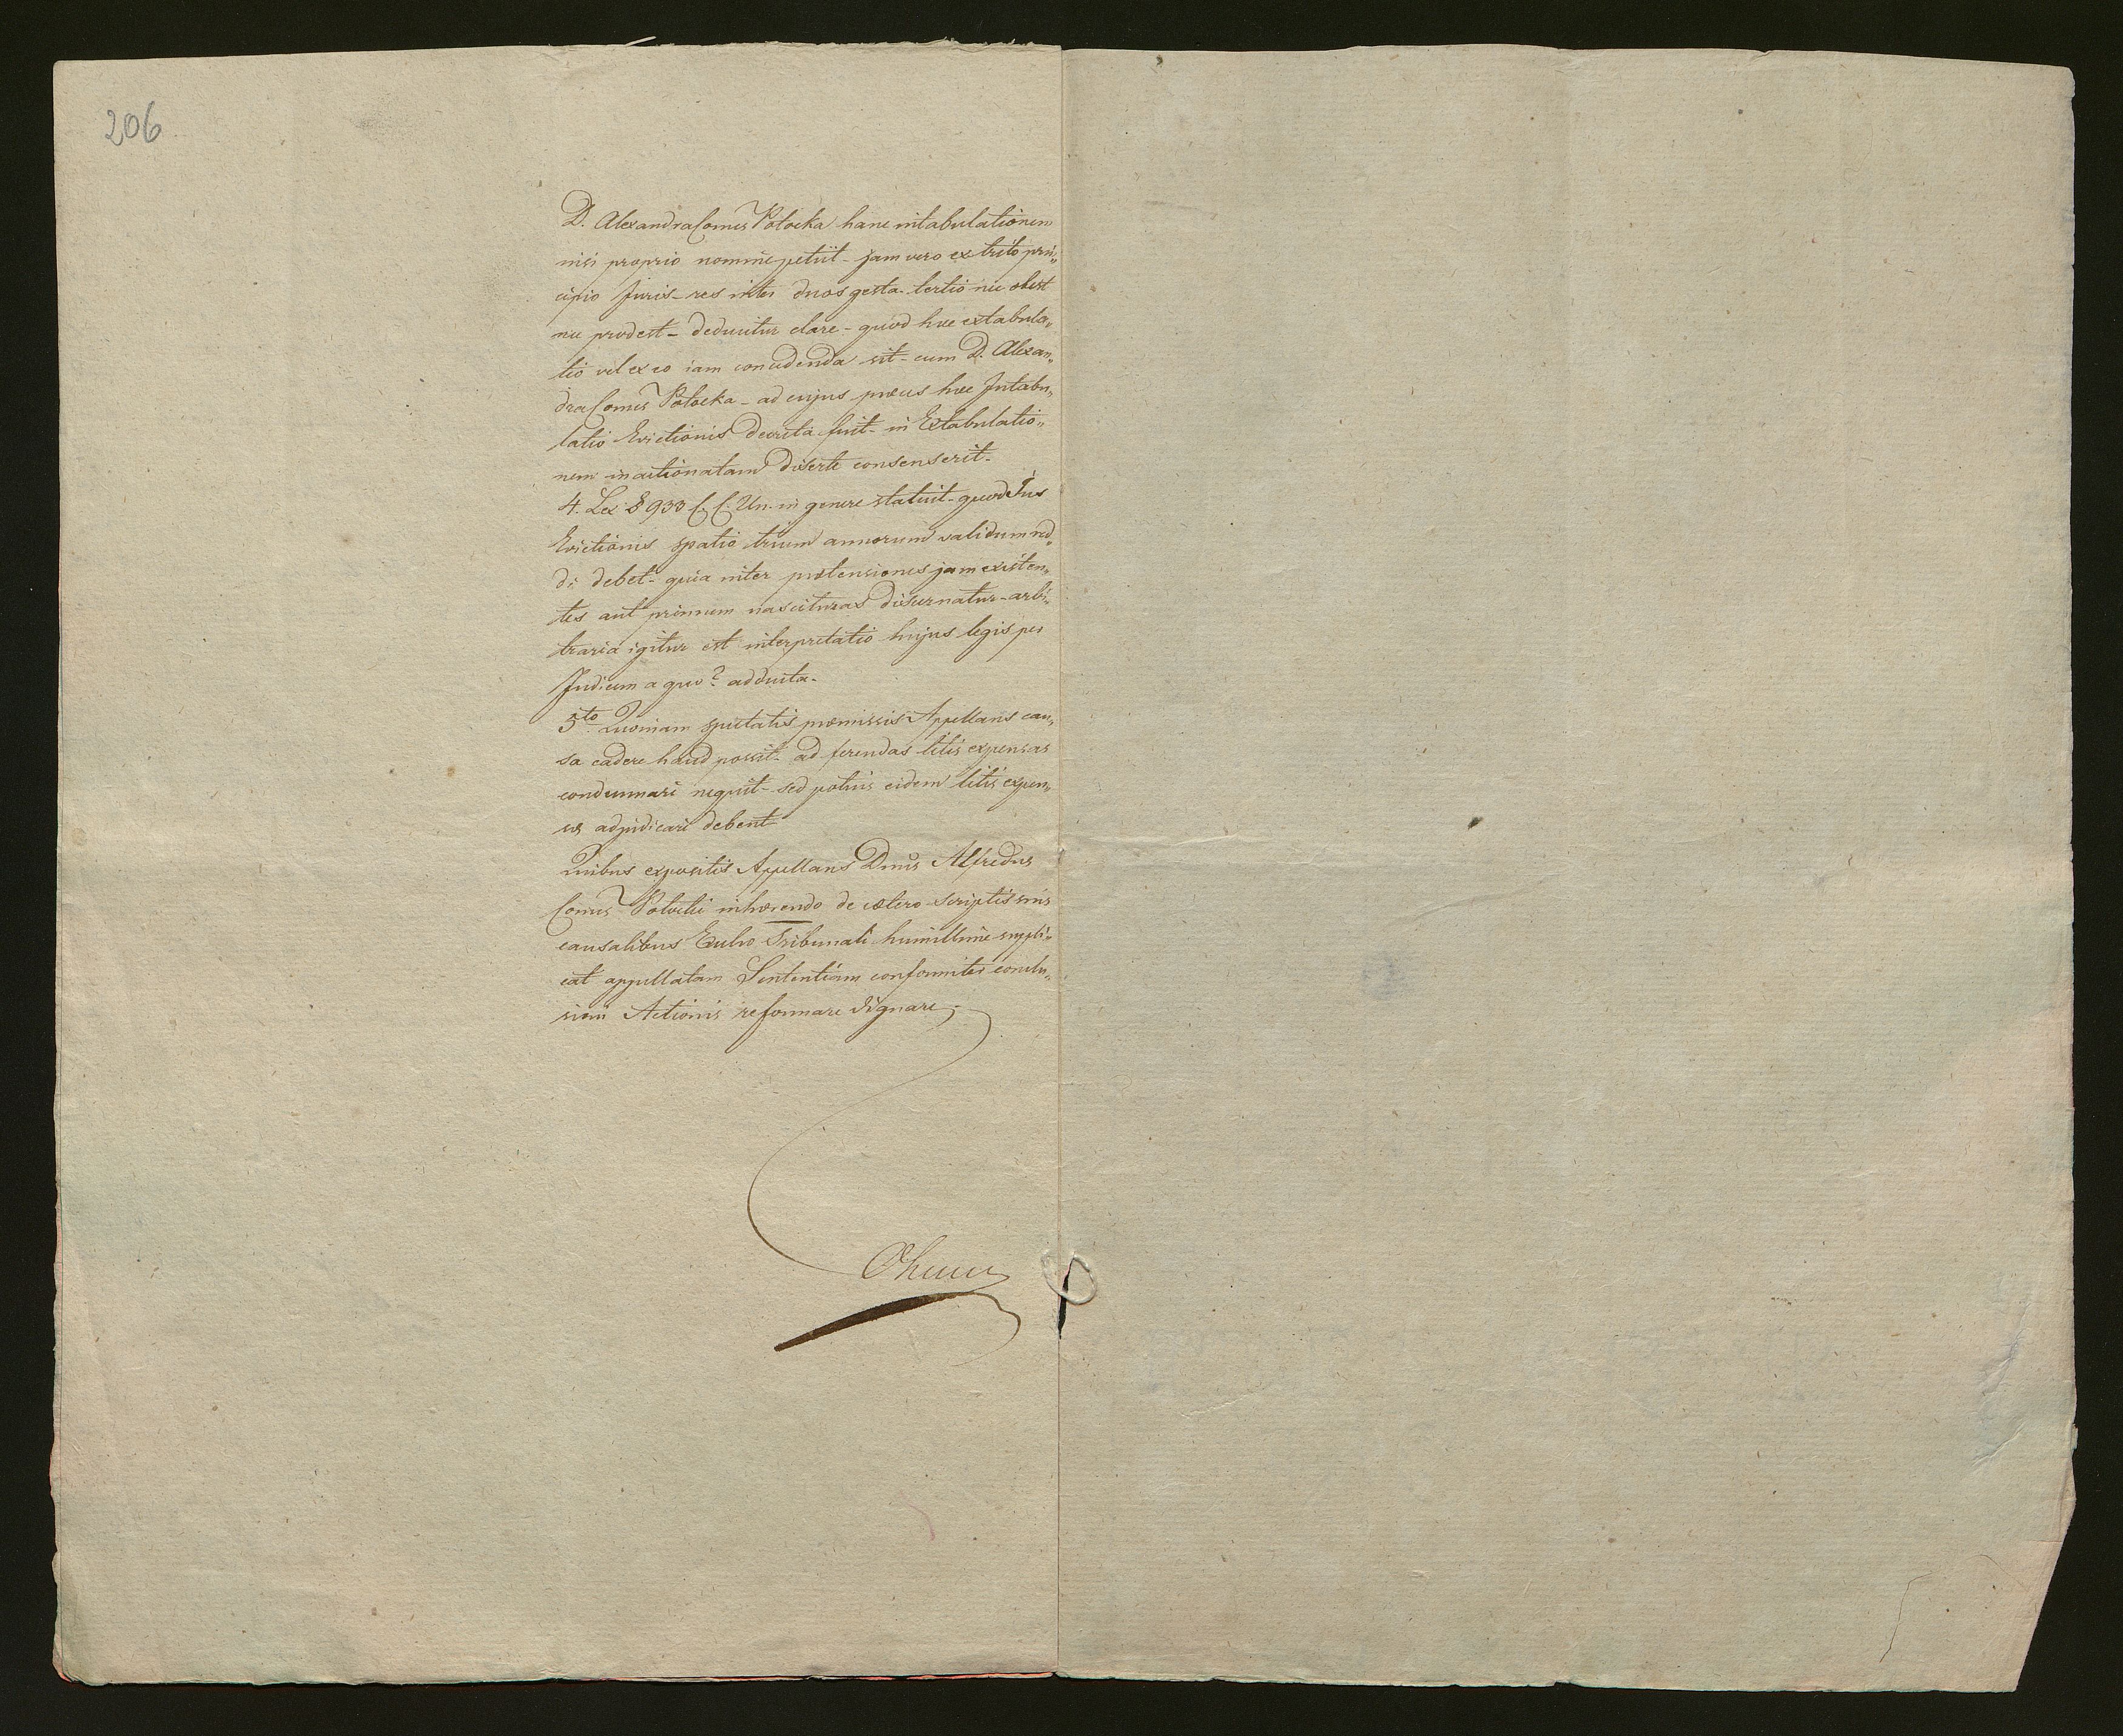 206
D. Alexandra Comes Potocka hanc intabulationem
nisi proprio nomine petiit - jam vero ex trito prin„
cipio Juris - res inter duos gesta tertio nec obest
nec prodest - deducitur clare - quod hæc extabula„
tio vel ex eo iam concedenda sit - cum D. Alexan„
dra Comes Potocka - ad cujus preces hæc Intabu„
latio Evictionis decreta fuit - in Extabulatio„
nem inactionatam diserte consenserit.
4. Lex § 933 C. C. Un. in genere statuit - quod Jus
Evictionis spatio trium annorum validum red„
di debet - quin inter prætensiones jam existen„
tes aut primum nascituras discernatur - arbi„
traria igitur est interpretatio hujus legis per
Judicem a quo? adducta.
5to Quoniam spectatis præmissis Appellans cau„
sa cadere haud possit - ad ferendas litis expensas
condemnari nequit - sed potius eidem litis expen„
sæ adjudicari debent
Quibus expositis Apellans Dnus Alfredus
Comes Potocki inhærendo de cætero scriptis suis
causalibus Exulso Tribunali humillime suppli„
cat appellatam Sententiam conformiter conclu„
sioni Actionis reformare dignare.